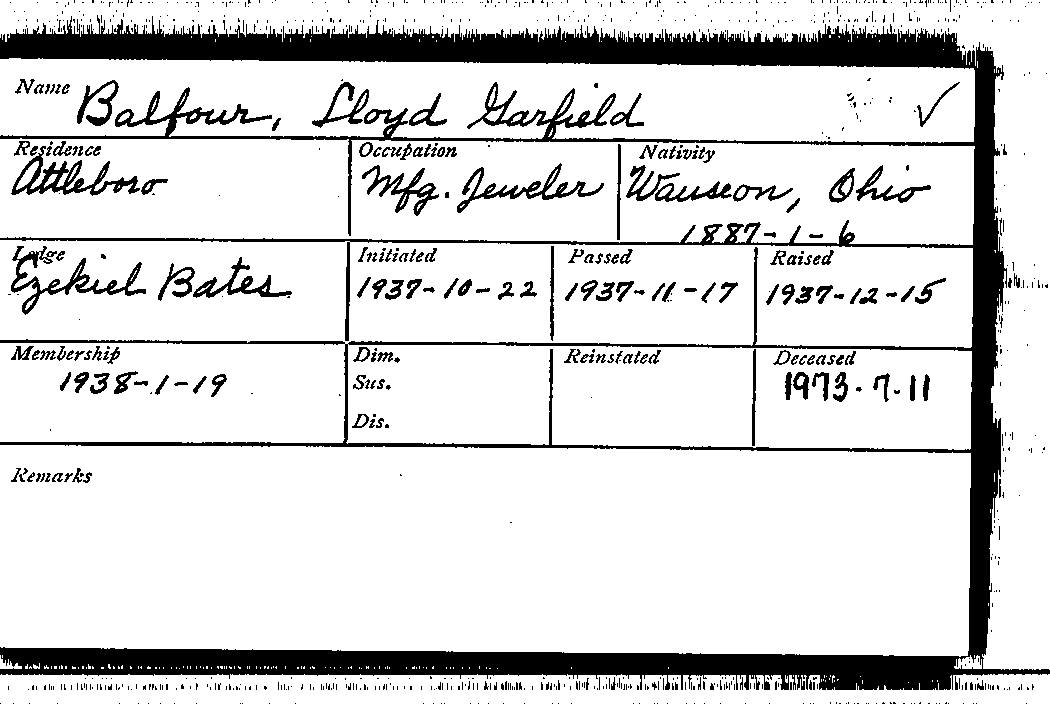 Name Balfour, Lloyd Garfield ✓
Residence Occupation Nativity
Attleboro Mfg. Jeweler Wauseon, Ohio
1887-1-6
Lodge Initiated Passed Raised
Ezekiel Bates 1937-10-22 1937-11-17 1937-12-15
Membership Dim. Reinstated Deceased
1938-1-19 Sus. 1973.7.11
Dis.
Remarks